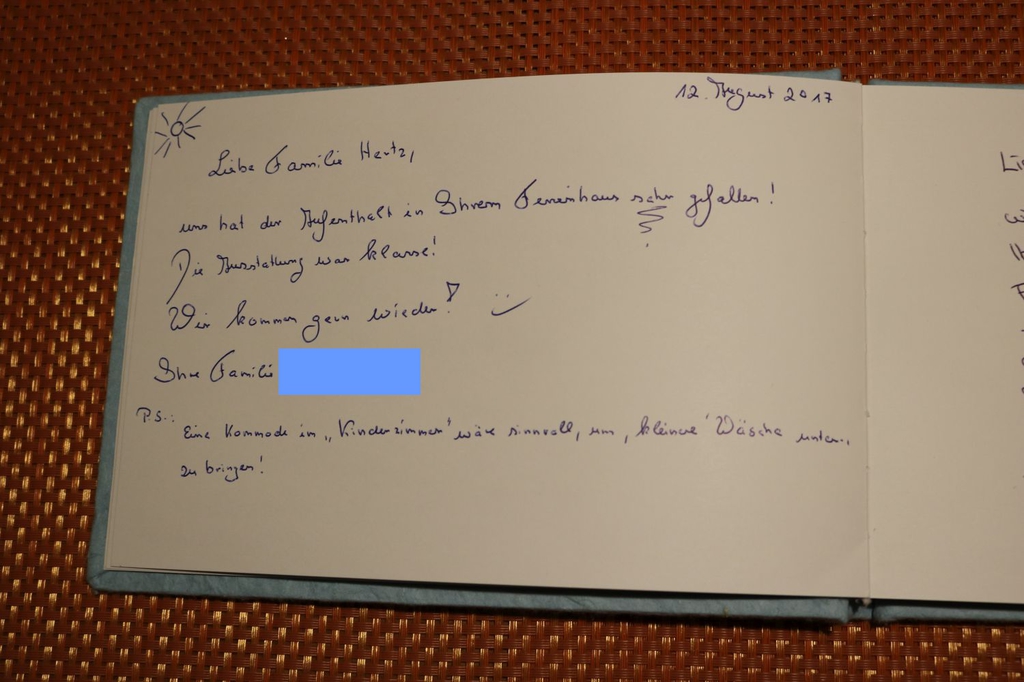 12. August 2017
Liebe Familie Hertz,
uns hat der Aufenthalt in Ihrem Ferienhaus sehr gefallen!
Die Ausstattung war klasse!
Wir kommen gern wieder!
Ihre Familie
P.S.:
Eine Kommode im „Kinderzimmer" wäre sinnvoll, um „kleinere" Wäsche unter-
zu bringen!